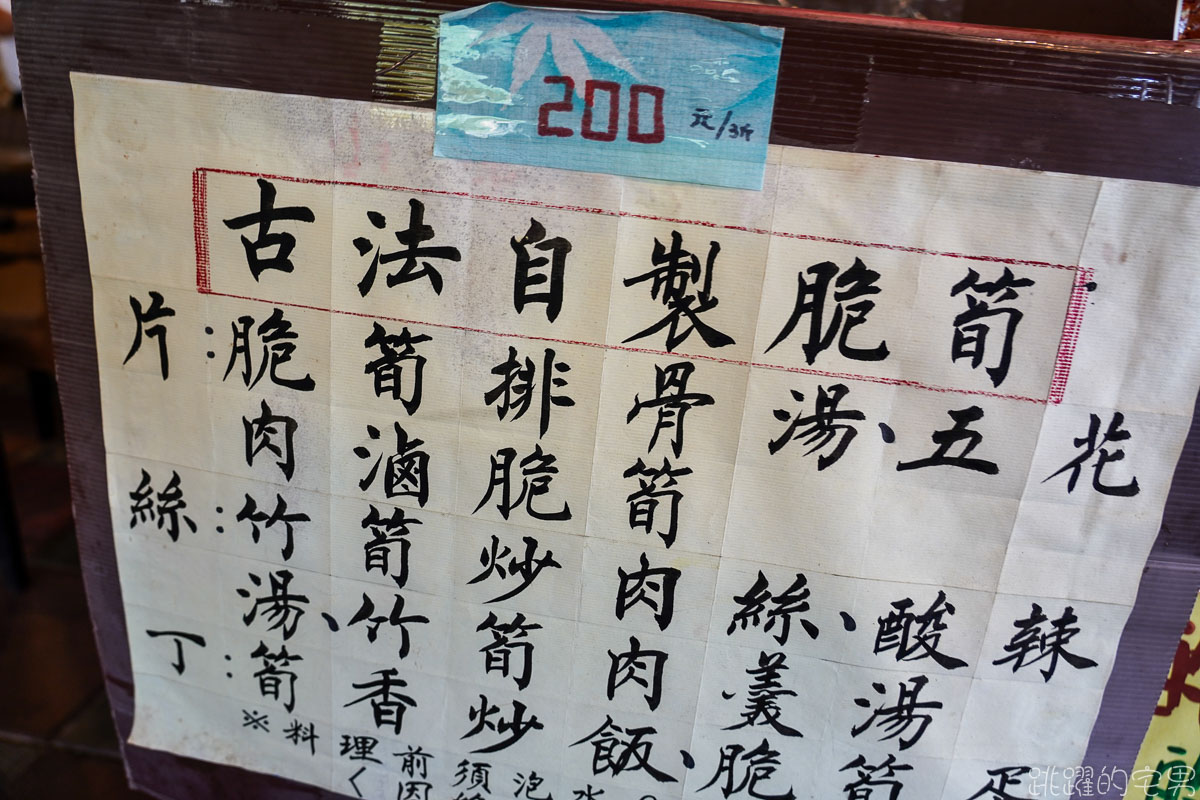 200 元/3斤
古法自製脆筍
片：脆筍排骨湯、五花
肉滷脆筍
絲：竹筍炒肉絲、酸辣
湯、竹筍肉羹湯
丁：筍香炒肉飯、脆筍
※料理前須泡水
跳躍的宅男